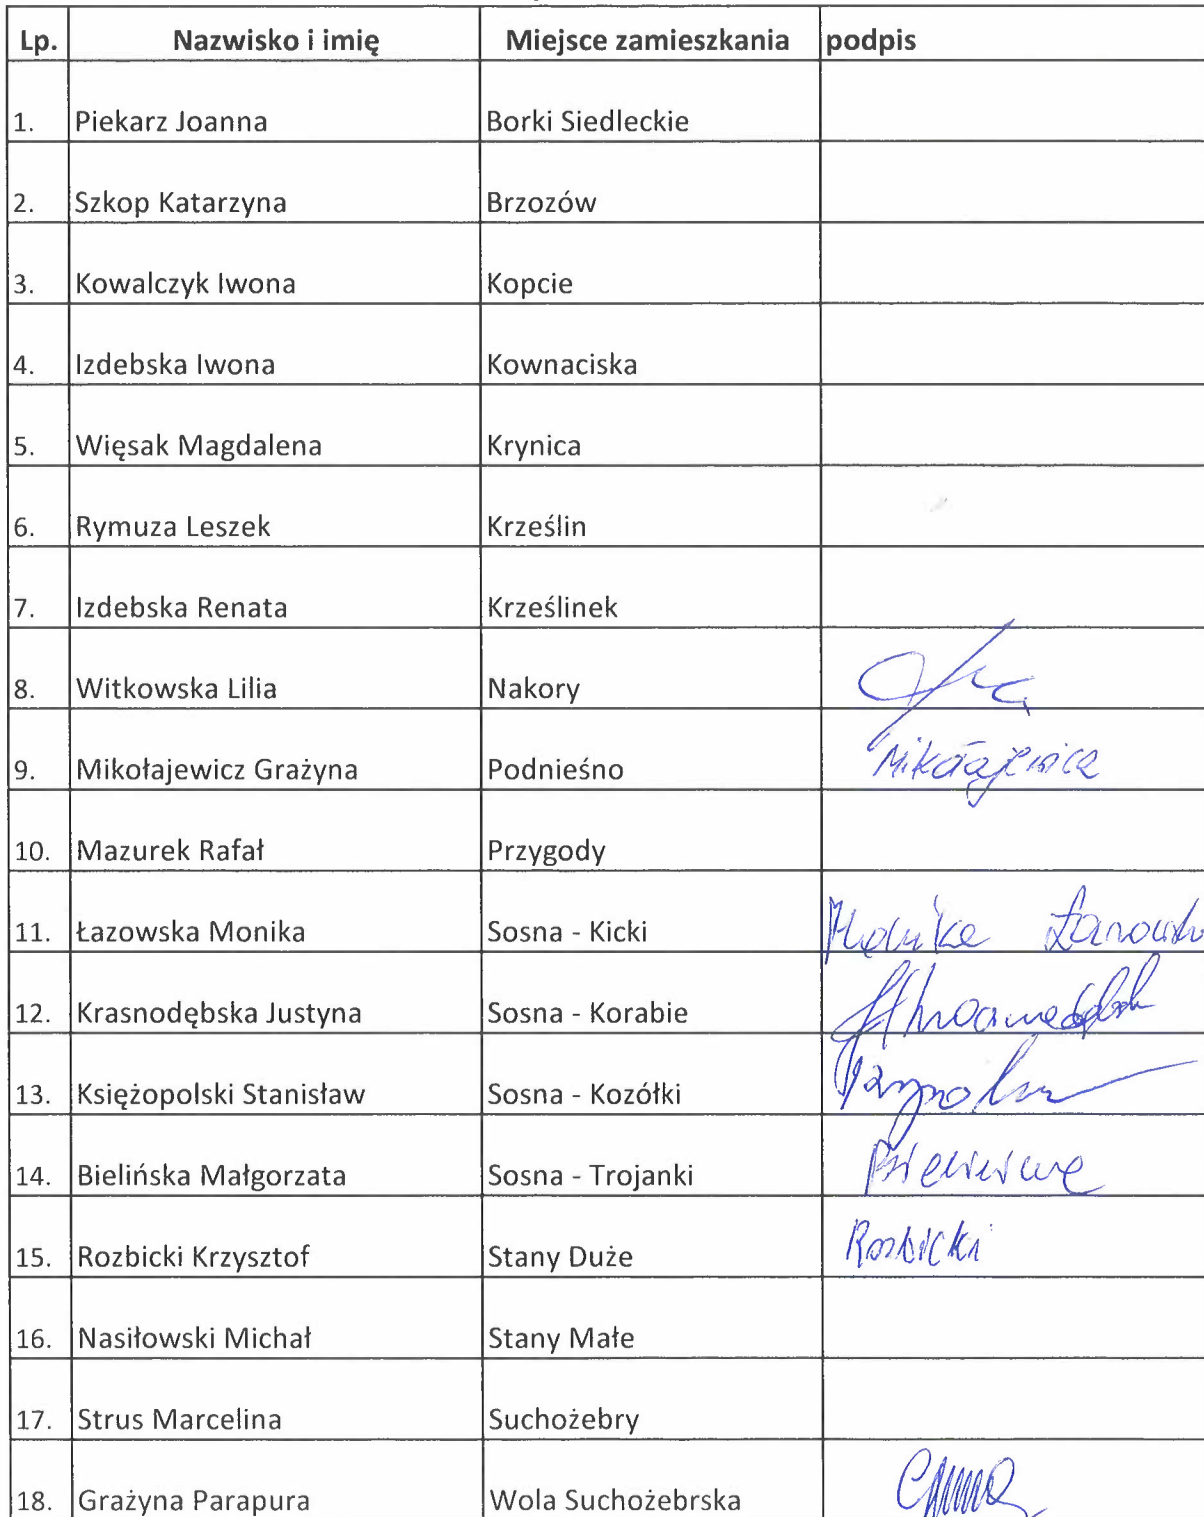 Lp. Nazwisko i imię Miejsce zamieszkania podpis
1. Piekarz Joanna Borki Siedleckie
2. Szkop Katarzyna Brzozów
3. Kowalczyk Iwona Kopcie
4. Izdebska Iwona Kownaciska
5. Więsak Magdalena Krynica
6. Rymuza Leszek Krześlin
7. Izdebska Renata Krześlinek
8. Witkowska Lilia Nakory
9. Mikołajewicz Grażyna Podnieśno Mikołajewicz
10. Mazurek Rafał Przygody
11. Łazowska Monika Sosna - Kicki Monika
12. Krasnodębska Justyna Sosna - Korabie
13. Księżopolski Stanisław Sosna - Kozółki
14. Bielińska Małgorzata Sosna - Trojanki
15. Rozbicki Krzysztof Stany Duże Rozbicki
16. Nasiłowski Michał Stany Małe
17. Strus Marcelina Suchożebry
18. Grażyna Parapura Wola Suchożebrska